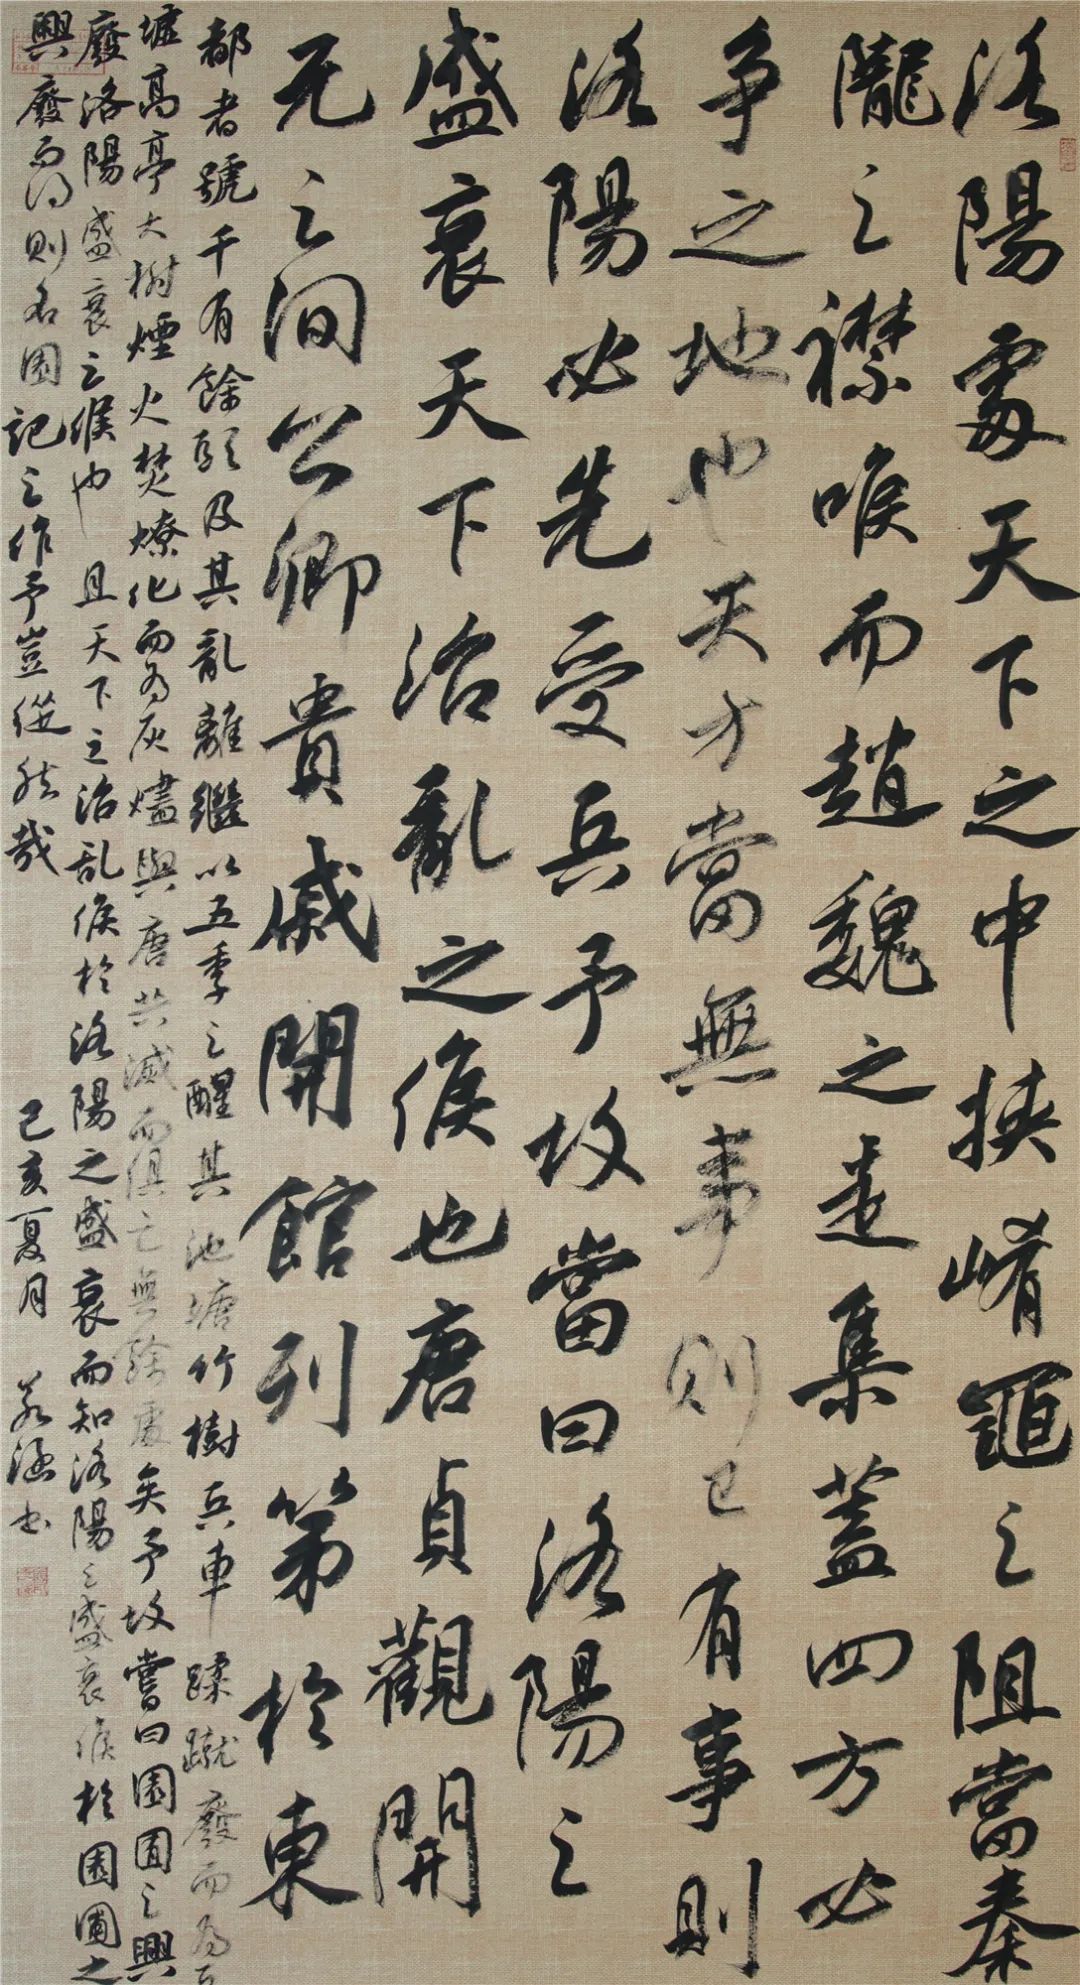 洛陽處天下之中挾崤黽之阻當秦
隴之襟喉而趙魏之走集蓋四方必
争之地也天下當無事則已有事則
洛陽必先受兵予故嘗曰洛陽之
盛衰天下治亂之候也唐貞觀開
元之間公卿貴戚開館列第於東
都者號千有餘邸及其亂離繼以五季之酷其池塘竹樹兵車蹂蹴廢而為丘
墟高亭大樹煙火焚燎化而為灰燼與唐共滅而俱亡無餘處矣予故嘗曰園囿之興
廢洛陽盛衰之候也且天下之治乱候於洛陽之盛衰而知洛陽之盛衰候於園圃之
興廢而得則名園記之作予豈徒然哉 己亥夏月 書